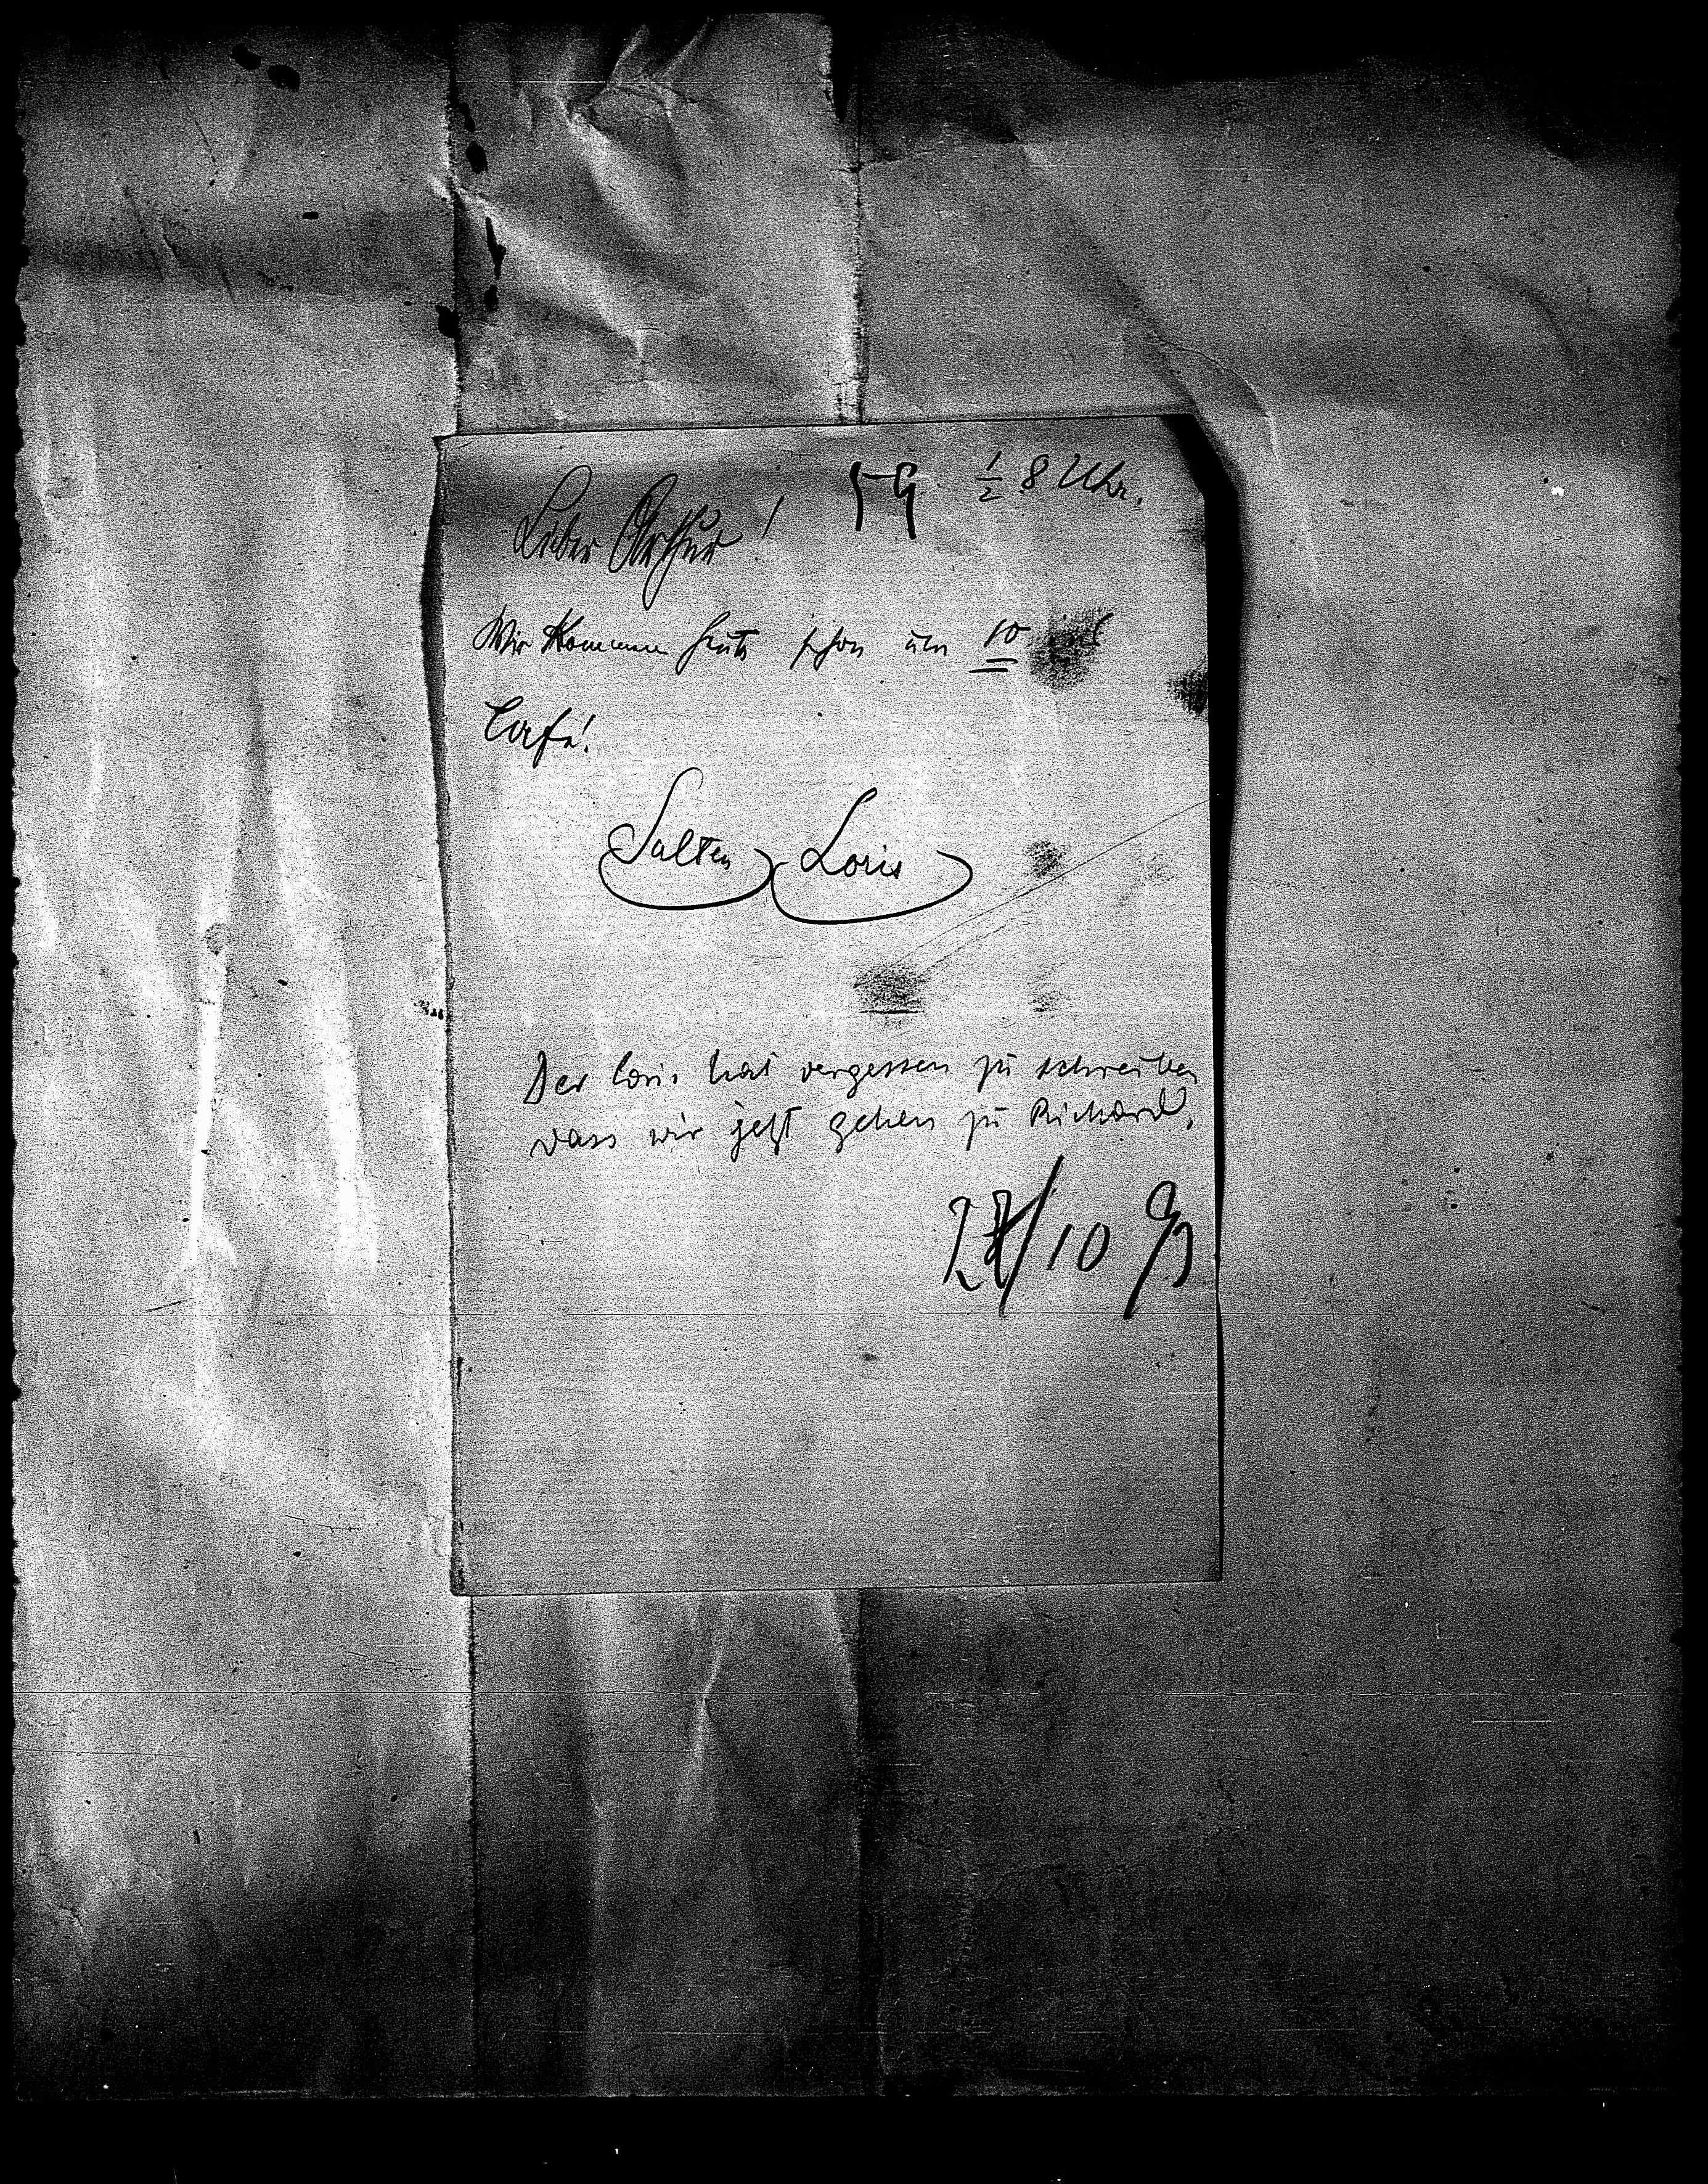 59 ½ 8 Uhr.
Lieber Arthur!
Wir kommen heute schon um 10
Café!
Salten Loris
Der Loris hat vergessen zu schreiben
dass wir jetzt gehen zu Richard.
/10 93